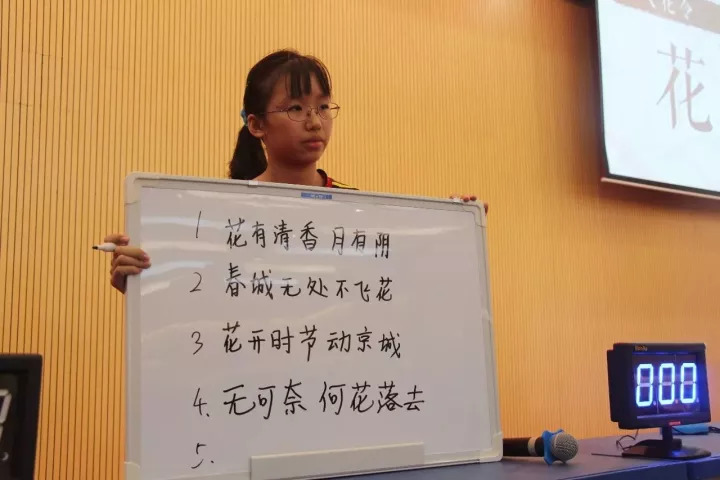 飞花令
花
1 花有清香月有阴
2 春城无处不飞花
3 花开时节动京城
4、无可奈何花落去
5、
000